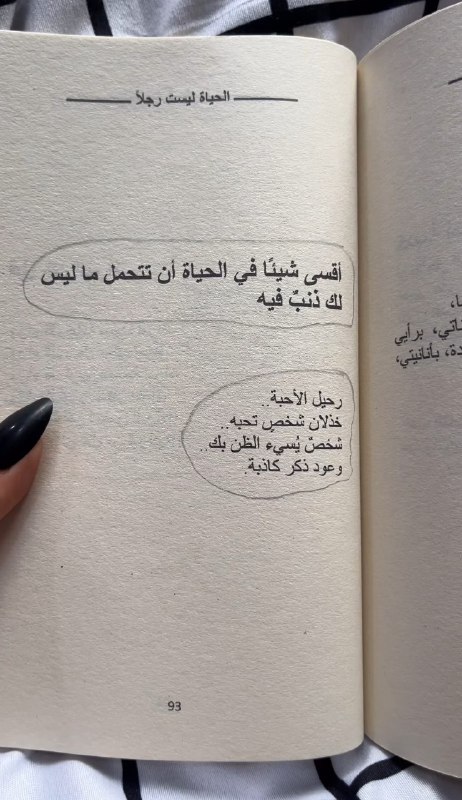 الحياة ليست رجلاً
أقسى شيئًا في الحياة أن تتحمل ما ليس
لك ذنبٌ فيه
رحيل الأحبة..
خذلان شخصٍ تحبه..
شخصٌ يُسيء الظن بك..
وعود ذكر كاذبة.
93
برأيي
بأنانيتي،